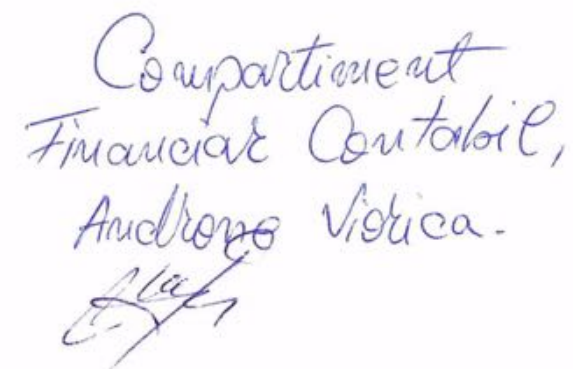 Compartiment
Financiar Contabil,
Viorica.